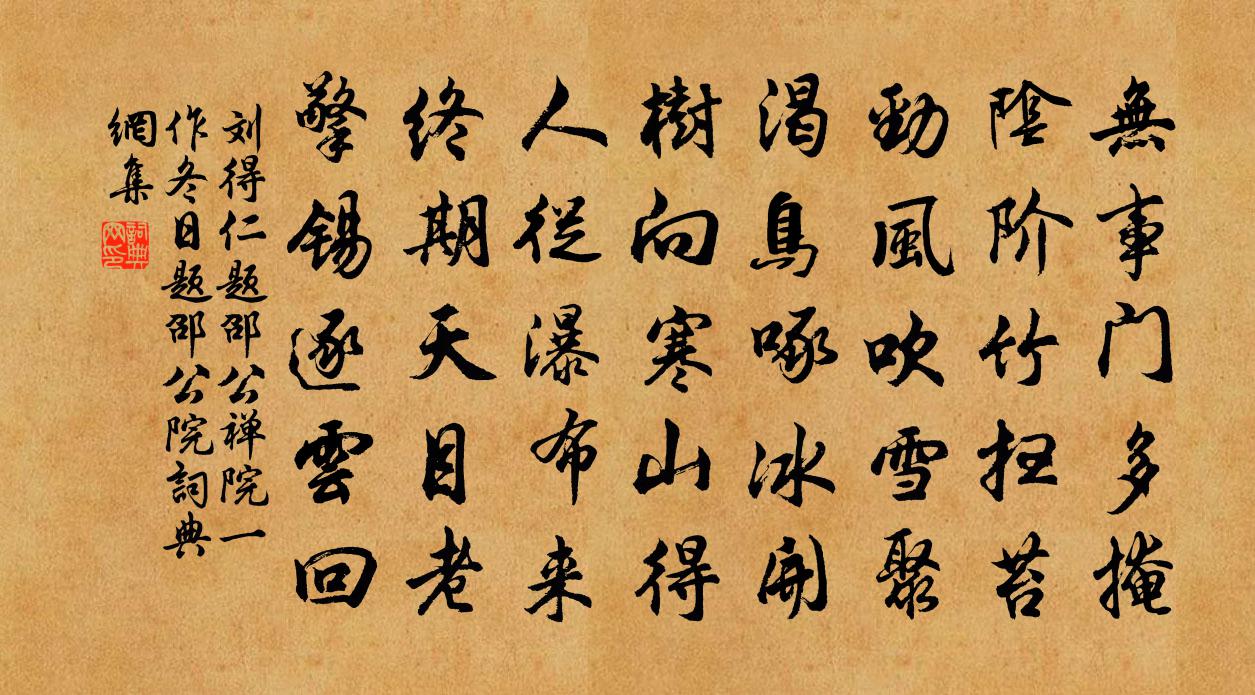 無事门多掩
陰阶竹扫苔
勁風吹雪聚
渴鳥啄冰開
樹向寒山得
人從瀑布来
终期天目老
擎锡逐雲回
刘得仁题邵公禅院一
作冬日题邵公院詞典
網集
詞典
网印